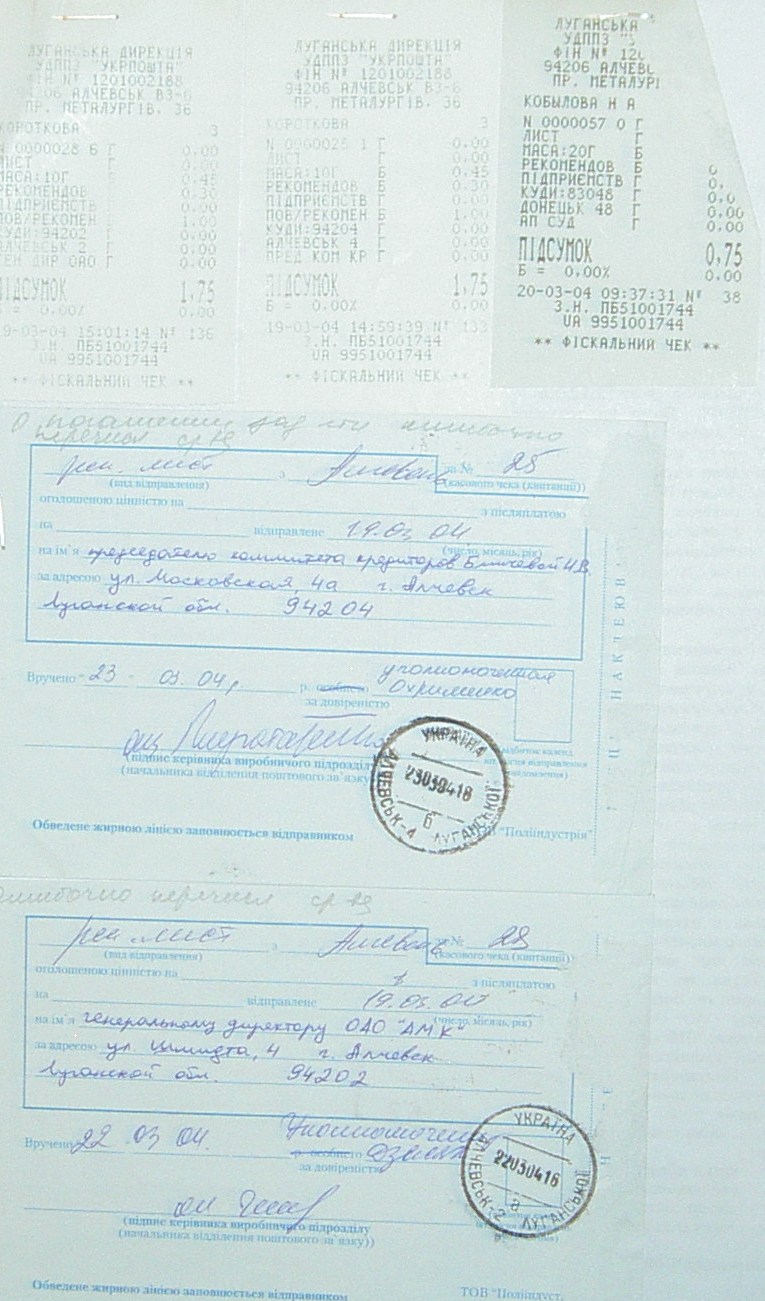 ЛУГАНСЬКА ДИРЕКЦІЯ
УДППЗ "УКРПОШТА"
ФІН № 1201002188
94206 АЛЧЕВСЬК ВЗ-6
ПР. МЕТАЛУРГІВ, 36
КОРОТКОВА 3
N 0000028 6 Г 0.00
ЛИСТ Г 0.00
МАСА:10Г Б 0.45
РЕКОМЕНДОВ Б 0.30
ПІДПРИЄМСТВ Г 0.00
ПОВ/РЕКОМЕН Б 1.00
КУДИ:94202 Г 0.00
АЛЧЕВСЬК 2 Г 0.00
ГЕН ДИР ОАО Г 0.00
ПІДСУМОК 1,75
Б = 0,00% 0.00
19-03-04 15:01:14 №  136
З.Н. ПБ51001744
UA 9951001744
** ФІСКАЛЬНИЙ ЧЕК **
ЛУГАНСЬКА ДИРЕКЦІЯ
УДППЗ "УКРПОШТА"
ФІН № 1201002188
94206 АЛЧЕВСЬК ВЗ-6
ПР. МЕТАЛУРГІВ, 36
КОРОТКОВА 3
N 0000025 1 Г 0.00
ЛИСТ Г 0.00
МАСА:10Г Б 0.45
РЕКОМЕНДОВ Б 0.30
ПІДПРИЄМСТВ Г 0.00
ПОВ/РЕКОМЕН Б 1.00
КУДИ:94204 Г 0.00
АЛЧЕВСЬК 4 Г 0.00
ПРЕД КОМ КР Г 0.00
ПІДСУМОК 1,75
Б = 0,00% 0.00
19-03-04 14:59:39 № 133
З.Н. ПБ51001744
UA 9951001744
** ФІСКАЛЬНИЙ ЧЕК **
ЛУГАНСЬКА
УДППЗ
ФІН №
94206
ПР. МЕТАЛУРГІ
КОБЫЛОВА Н А
N 0000057 0 Г
ЛИСТ Г
МАСА:20Г Б
РЕКОМЕНДОВ Б
ПІДПРИЄМСТВ Г
КУДИ:83048 Г
ДОНЕЦЬК 48 Г 0.00
АП СУД Г 0.00
ПІДСУМОК 0,75
Б = 0,00% 0.00
20-03-04 09:37:31 № 38
З.Н. ПБ51001744
UA 9951001744
** ФІСКАЛЬНИЙ ЧЕК **
О погашении зад-сти ошибочно
перечисл ср-в
рек. лист з Алчевськ за № 25
(вид відправлення) (касового чека (квитанції))
оголошеною цінністю на з післяплатою
на відправлене 19.03 04
(число, місяць, рік)
на ім`я председателю коммитета кредиторов
за адресою ул. Московская, 4а г. Алчевск
Луганской обл. 94204
Вручено 23 03 04 р. особисто уполномоченная
Охрименко
за довіреністю
(підпис керівника виробничого підрозділу
(начальника відділення поштового зв`язку)
УКРАЇНА
23030418
б
АЛЧЕВСЬК-4 ЛУГАНСЬКОЇ
Обведене жирною лінією заповнюється відправником ТОВ "Поліндустрія"
НАКЛЕЮВ
ошибочно перечисл ср-в
рек. лист з Алчевськ за № 28
(вид відправлення) (касового чека (квитанції))
оголошеною цінністю на з післяплатою
на відправлене 19.03.04
(число, місяць, рік)
на ім`я генеральному директору ОАО "АМК"
за адресою ул. Шмидта, 4 г. Алчевск
Луганской обл. 94202
Вручено 22 03 04 р. особисто
за довіреністю
(підпис керівника виробничого підрозділу
(начальника відділення поштового зв`язку))
УКРАЇНА
22030416
а
АЛЧЕВСЬК-2 ЛУГАНСЬКОЇ
Обведене жирною лінією заповнюється відправником ТОВ "Поліндуст.